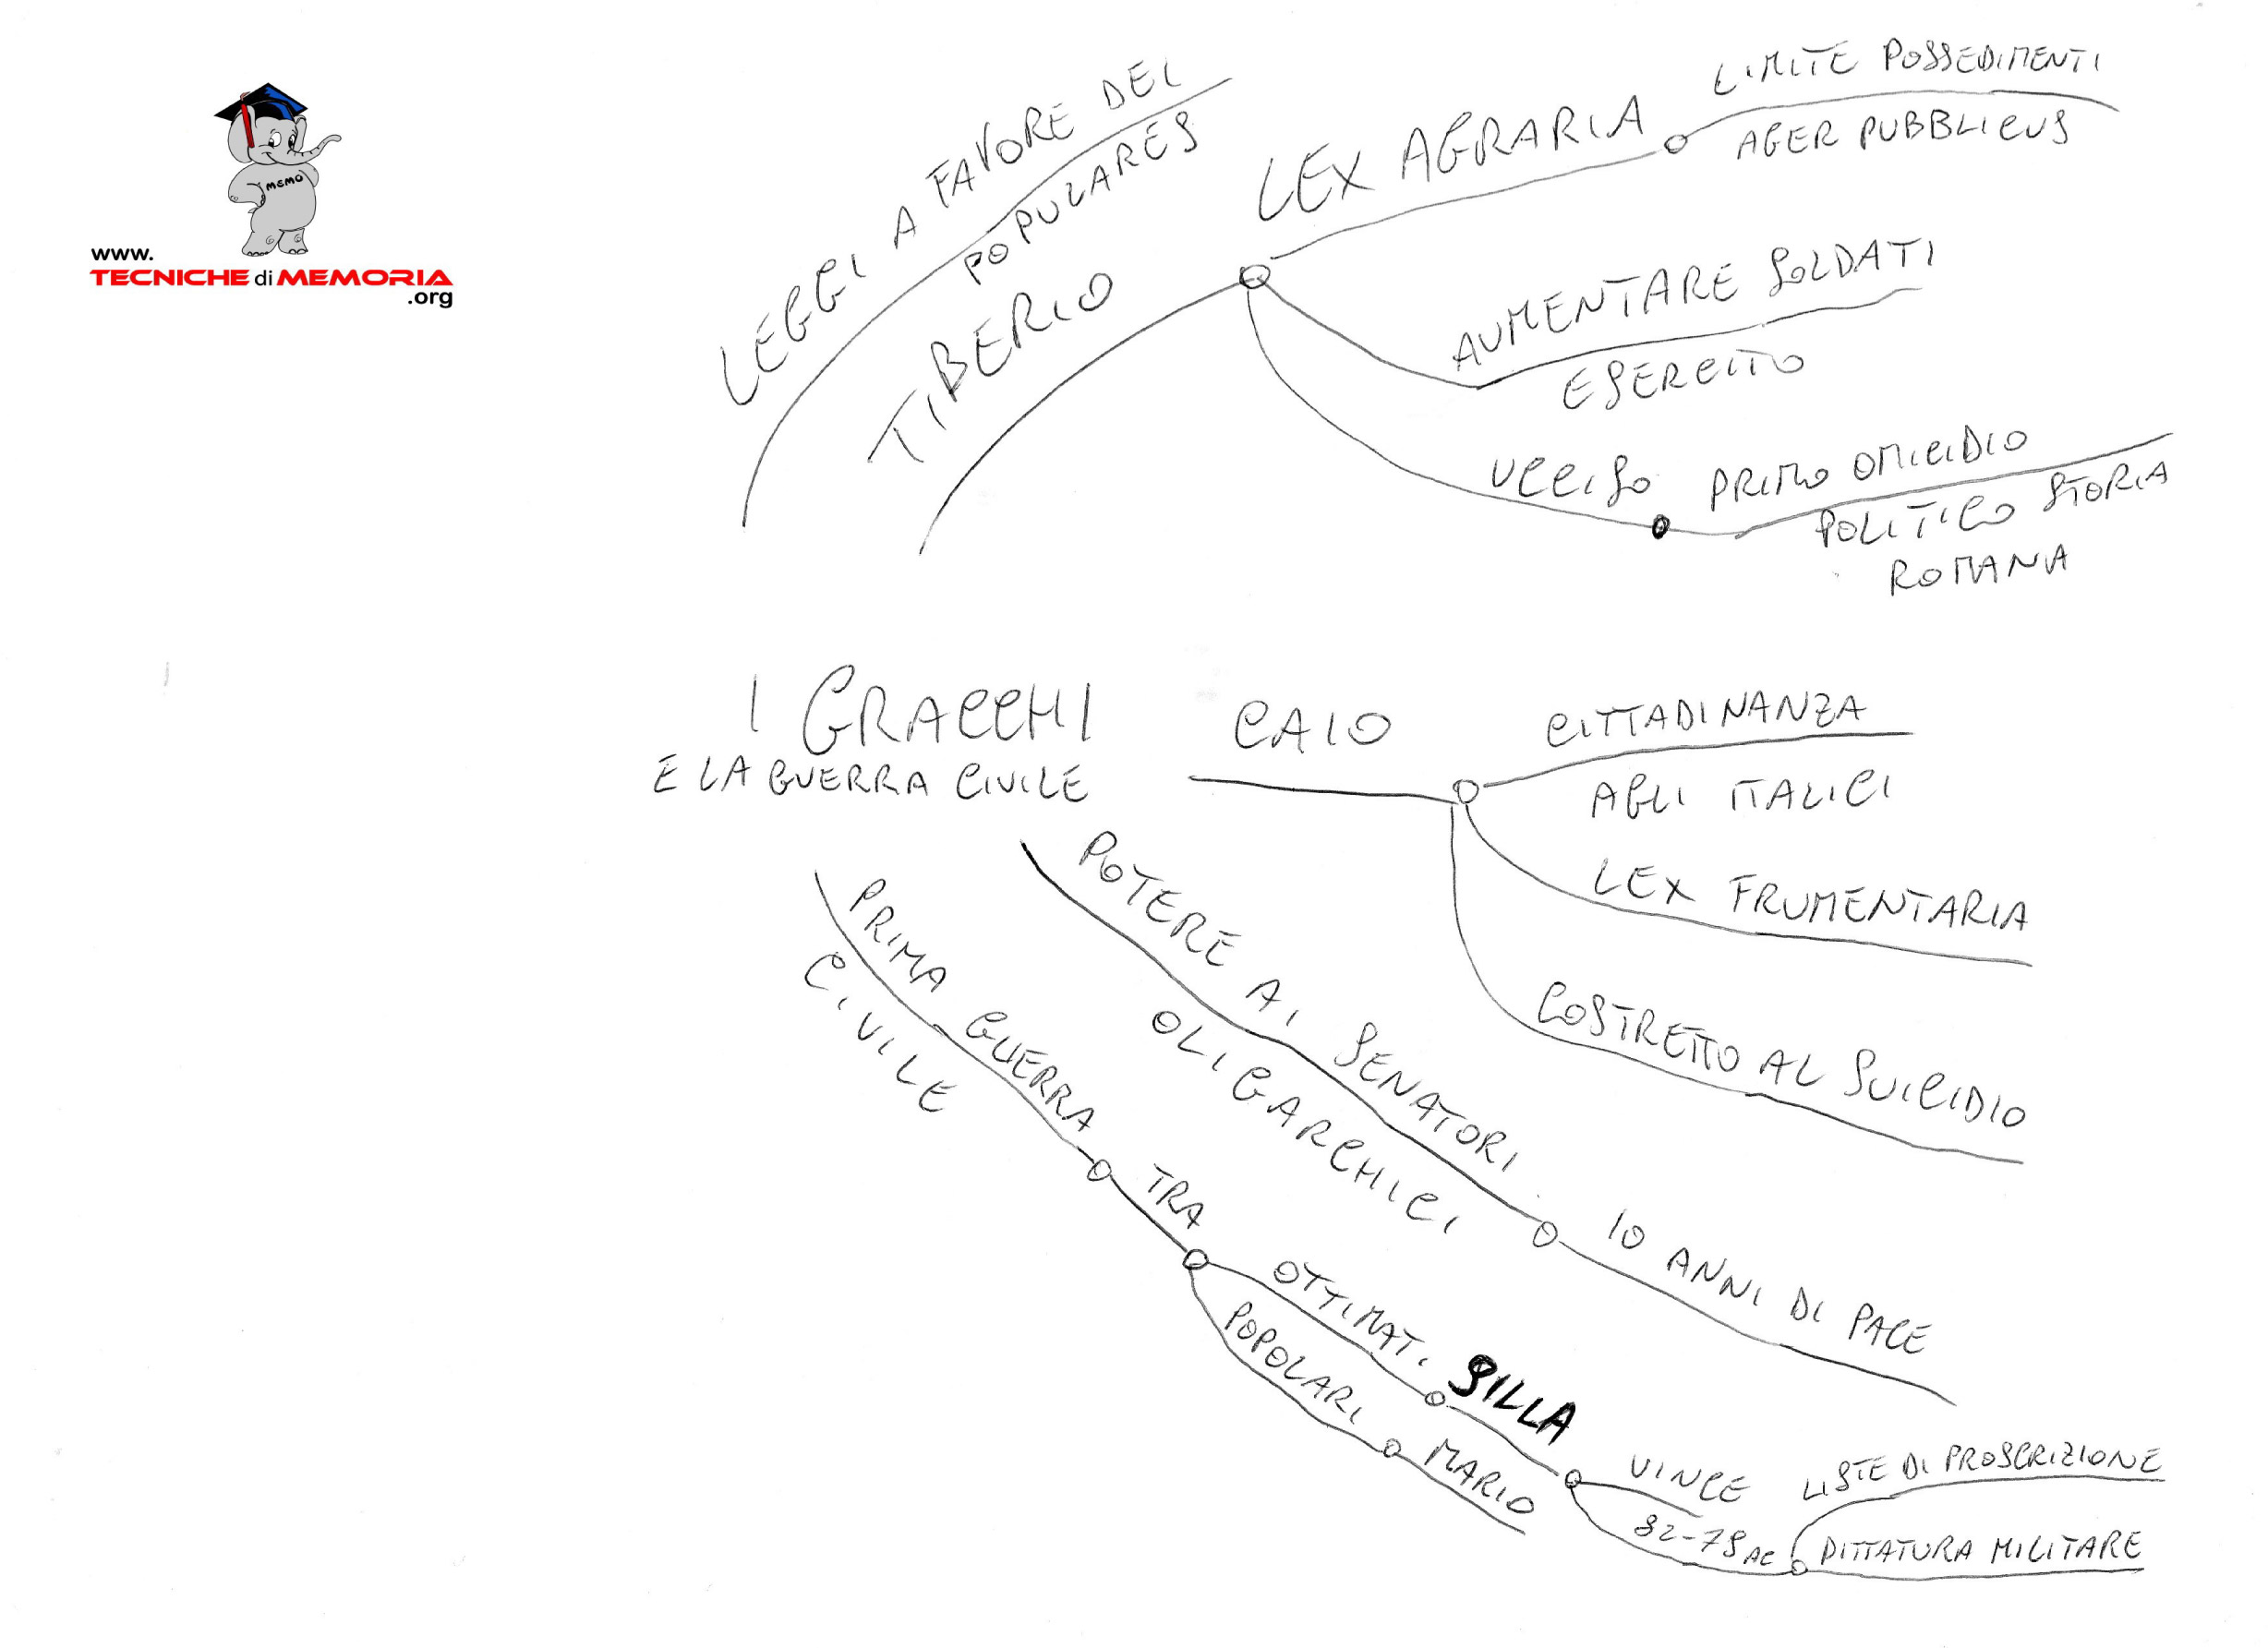 MEMO
www.
TECNICHE di MEMORIA
.org
LEGGI A FAVORE DEI
POPULARES
TIBERIO
LEX AGRARIA
LIMITE POSSEDIMENTI
AGER PUBBLICUS
AUMENTARE SOLDATI
ESERCITO
UCCISO
PRIMO OMICIDIO
POLITICO STORIA
ROMANA
I GRACCHI
E LA GUERRA CIVILE
CAIO
CITTADINANZA
AGLI ITALICI
LEX FRUMENTARIA
COSTRETTO AL SUICIDIO
POTERE AI SENATORI
OLIGARCHICI
10 ANNI DI PACE
PRIMA GUERRA
CIVILE
TRA
OTTIMATI
SILLA
POPOLARI
MARIO
VINCE
82-79 AC
LISTE DI PROSCRIZIONE
DITTATURA MILITARE